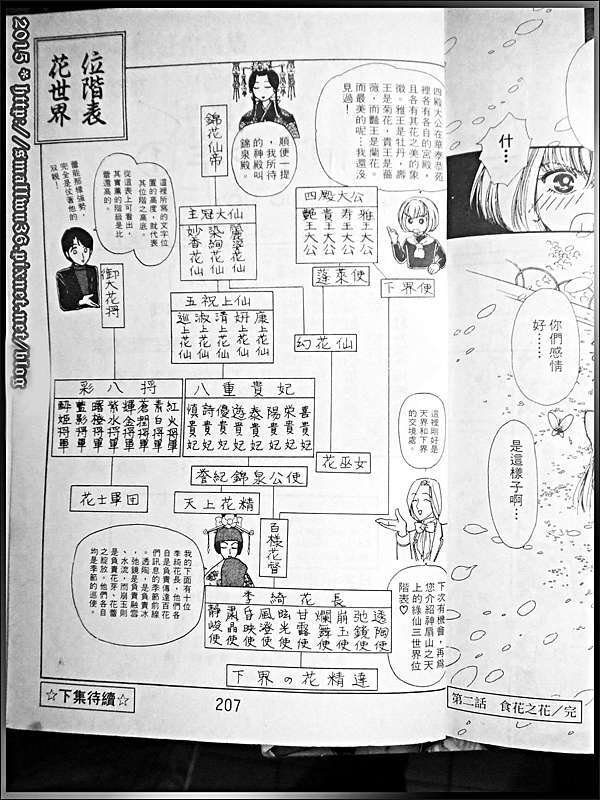 2015 * http://smallwu36.pixnet.net/blog
花世界
位階表
錦花仙帝
順便一提
，我所待
的神殿叫
錦泉殿。
四殿大公在華泰恩苑
裡各有各自的宮殿，
且各有其花之美的象
徵。雅王是牡丹，壽
王是菊花，貴王是薔
薇，而豔王是蘭花。
而最美的呢…我還沒
見過！
什…
四殿大公
雅王大公
壽王大公
貴王大公
豔王大公
主冠大仙
染絢花仙
妙香花仙
這裡所寫的文字位
置的高度，就代表
其位階之高底。
從這表上可看出，
其實薰的階級是比
蕾還高的。
蕾能那樣強勢
完全是仗著他的
双親！
御大花將
蓬萊使
下界使
五祝上仙
康上花仙
妍上花仙
清上花仙
淑上花仙
巡上花仙
幻花仙
你們感情
好……
彩八将
紅火將軍
素白將軍
蒼潤將軍
輝金將軍
紫水將軍
曙橙將軍
藍影將軍
醉姬將軍
八重貴妃
喜貴妃
榮貴妃
陽貴妃
泰貴妃
遊貴妃
優貴妃
詩貴妃
慎貴妃
花巫女
這裡剛好是
天界和下界
的交境處。
是這樣子啊…
誉紀錦泉公使
花士軍団
天上花精
百樣花督
我的下面有十位
季綺花長，他們各
自是負責傳達百花
們訊息的季節前線
。透陶是負責冰
、弛鏡是負責融雪
、水流，而崩玉則
是負責花芽、花蕾
之綻放，他們各自
均是季節的巡使。
下次有機會，再為
您介紹神扇山之天
上的綠仙三世界位
階表♡
季綺花長
透陶使
弛鏡使
崩玉使
爛舞使
甘露使
眩光使
風澄使
昏映使
肅晶使
靜峻使
下界の花精達
☆下集待續☆
207
第二話　食花之花／完